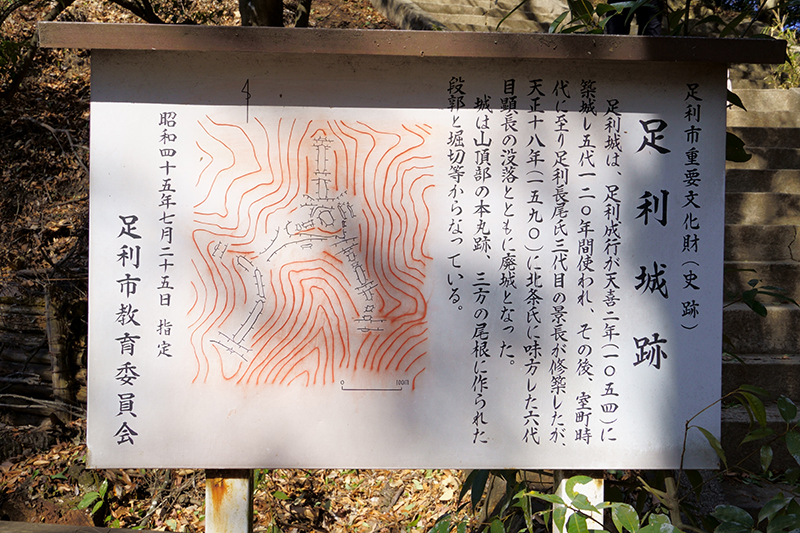 足利市重要文化財(史跡)
足利城跡
足利城は、足利成行が天喜二年(一〇五四)に
築城し五代一二〇年間使われ、その後、室町時
代に至り足利長尾氏三代目の景長が修築したが、
天正十八年(一五九〇)に北条氏に味方した六代
目顕長の没落とともに廃城となった。
城は山頂部の本丸跡、三方の尾根に作られた
段郭と堀切等からなっている。
0 100m
昭和四十五年七月二十五日 指定
足利市教育委員会